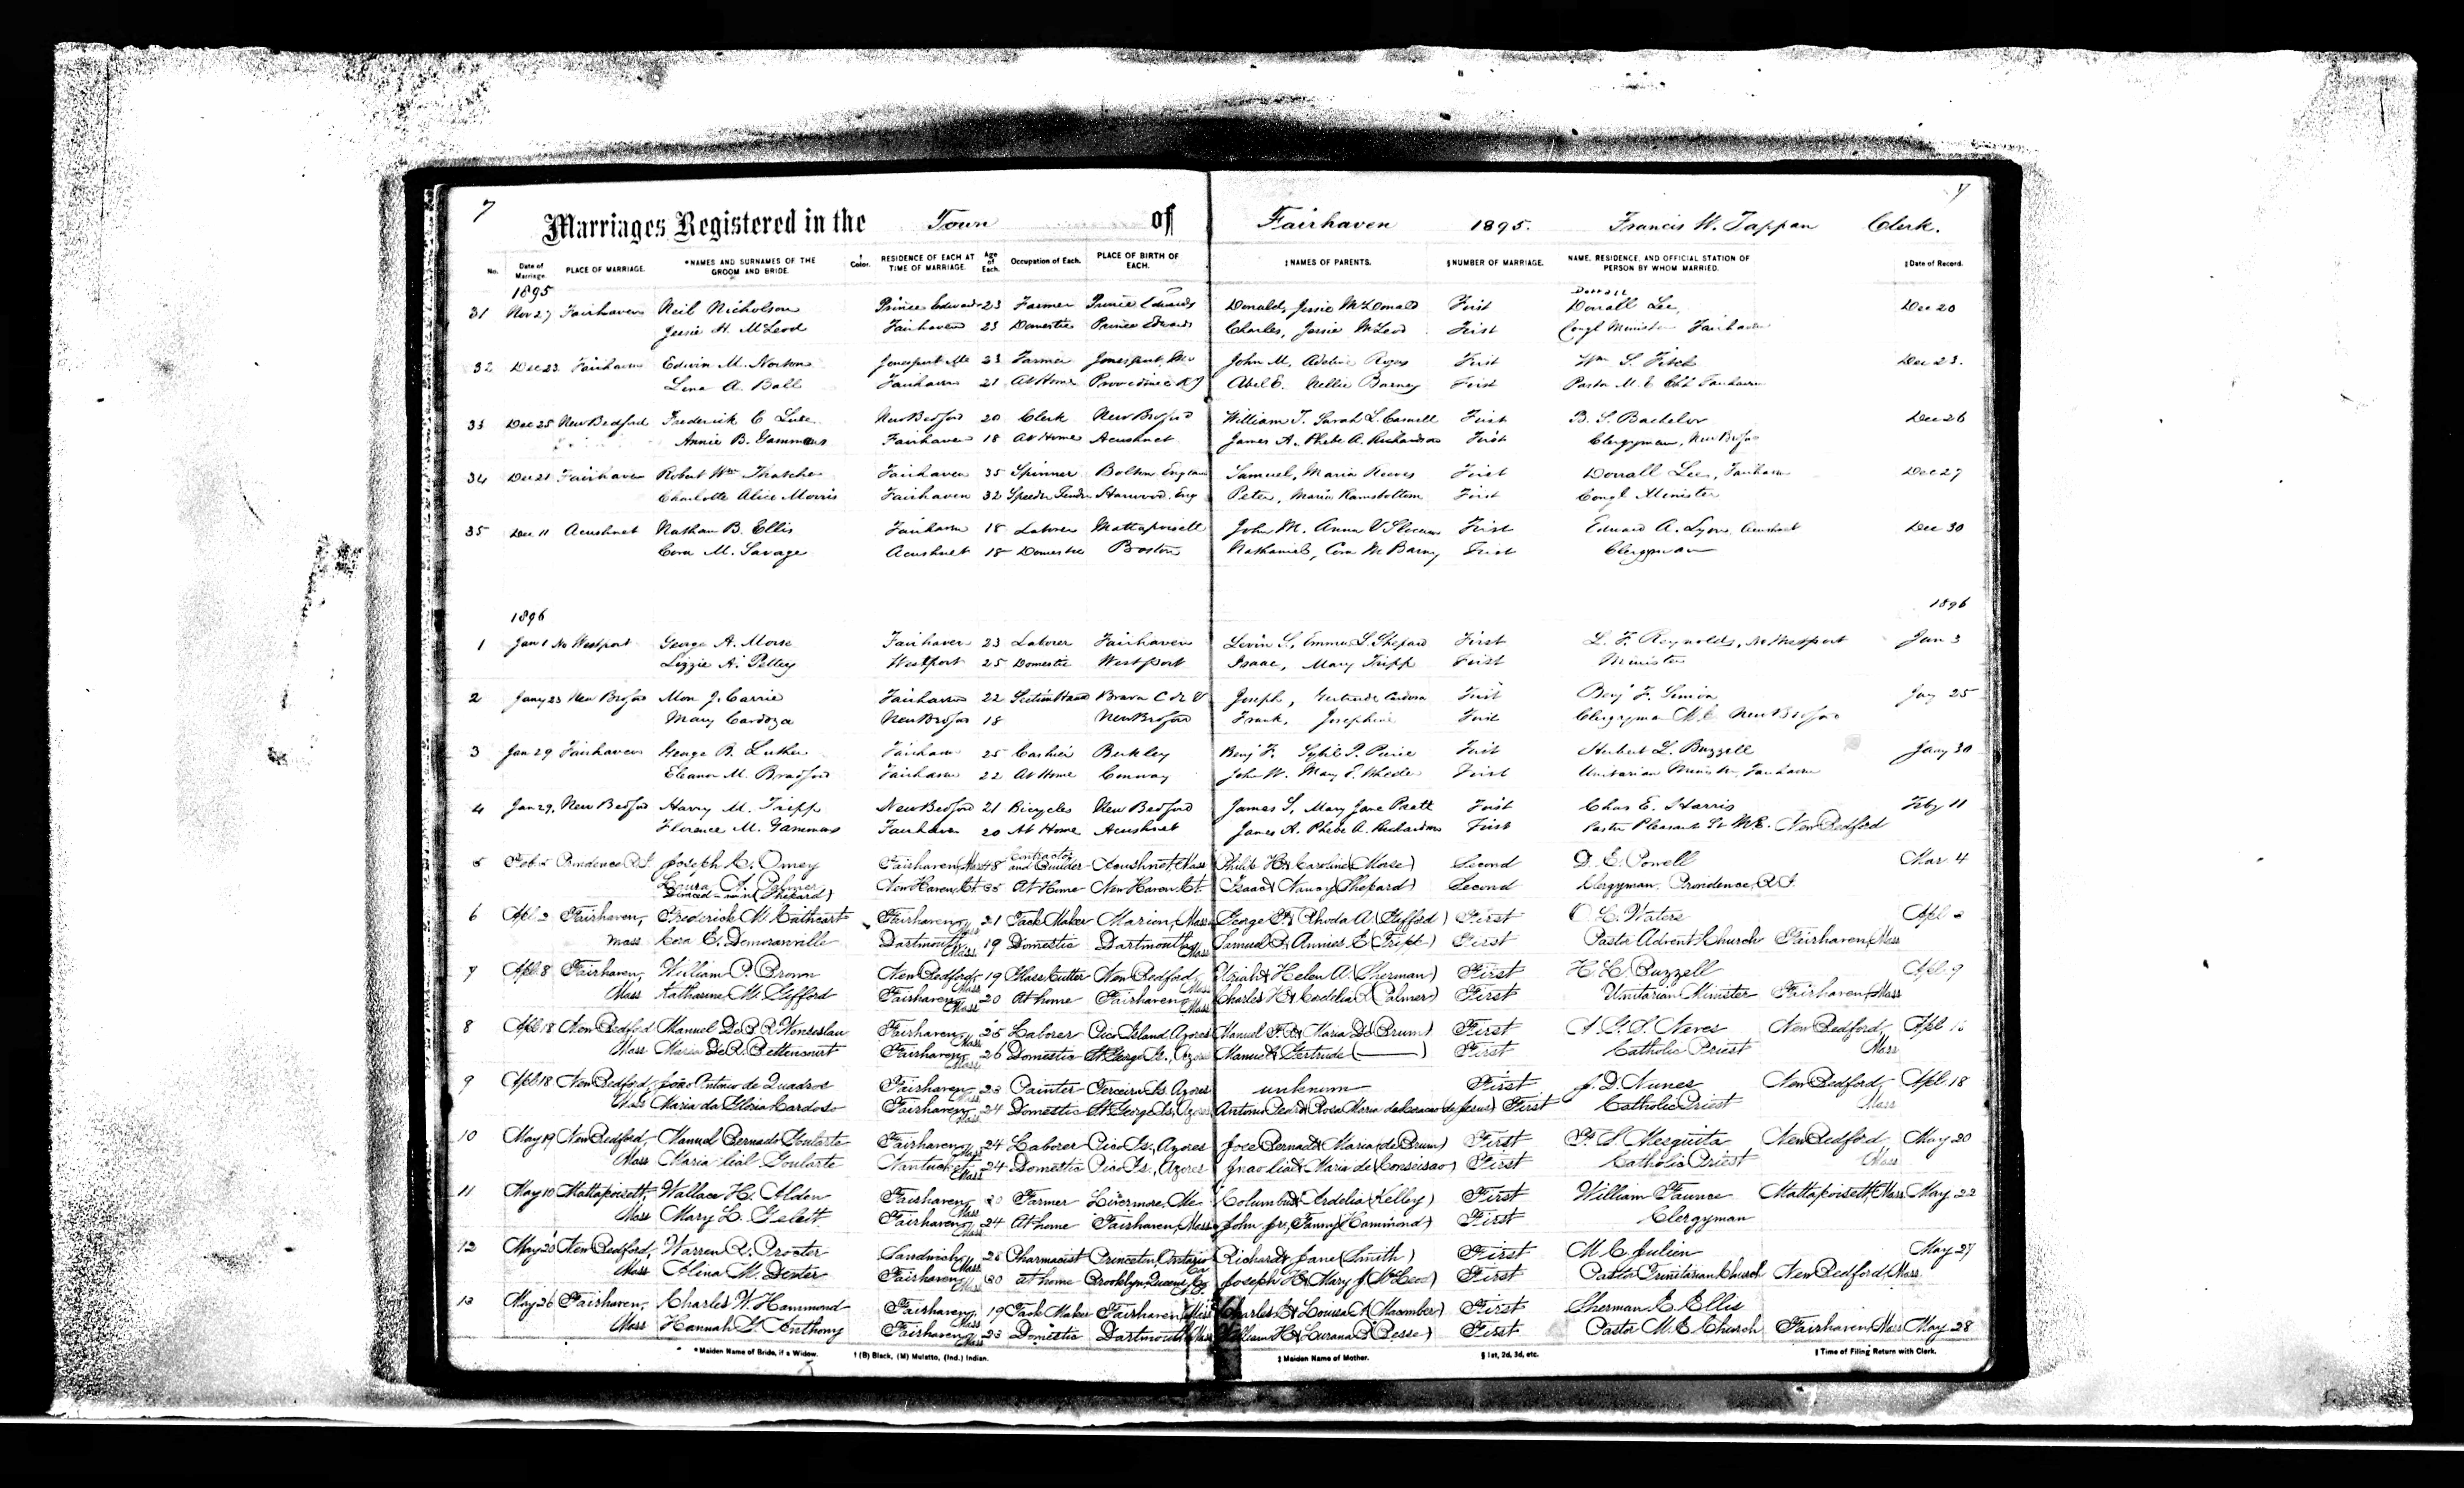 7 7
Marriages Registered in the Town of Fairhaven 1895. Francis W. Tappan Clerk.
No. Date of Marriage. PLACE OF MARRIAGE. *NAMES AND SURNAMES OF THE GROOM AND BRIDE. † Color. RESIDENCE OF EACH AT TIME OF MARRIAGE. Age of Each. Occupation of Each. PLACE OF BIRTH OF EACH. ‡NAMES OF PARENTS. §NUMBER OF MARRIAGE. NAME, RESIDENCE, AND OFFICIAL STATION OF PERSON BY WHOM MARRIED. ‖Date of Record.
1895
31 Nov 27 Fairhaven Neil Nicholson Prince Edwards 23 Farmer Prince Edwards Donald, Jessie McDonald First Dorrall Lee, Dec 20
Jessie H. McLeod Fairhaven 23 Domestic Prince Edwards Charles, Jessie McLeod First Congl Minister Fairhaven
32 Dec 23 Fairhaven Edwin M. Norton Jonesport Me 23 Farmer Jonesport, Me John M, Adeline Rogers First Wm S. Fitch Dec 23.
Lena A. Ball Fairhaven 21 At Home Providence RI Abel E. Nellie Barney First Pastor M. E Ch Fairhaven
33 Dec 25 New Bedford Frederick C Luce New Bedford 20 Clerk New Bedford William T. Sarah L First B. S. Bachelor Dec 26
Annie B. Gammons Fairhaven 18 At Home Acushnet James A. Phebe A. Richardson First Clergyman, New Bedford
34 Dec 21 Fairhaven Robert Wm Thatcher Fairhaven 35 Spinner Bolton England Samuel, Maria Reeves First Dorrall Lee, Fairhaven Dec 27
Charlotte Alice Morris Fairhaven 32 Speeder Tender Harwood. Eng Peter, Maria Ramsbottom First Congl Minister
35 Dec 11 Acushnet Nathan B. Ellis Fairhaven 18 Laborer Mattapoisett John M. Anna V Slocum First Edward A. Lyon, Acushnet Dec 30
Cora M. Savage Acushnet 18 Domestic Boston Nathaniel, Cora M Barney First Clergyman
1896 1896
1 Jan 1 No Westport George A. Morse Fairhaven 23 Laborer Fairhaven Levin S., Emma S. Shepard First L. F. Reynolds, No Westport Jan 3
Lizzie A. Pettey Westport 25 Domestic Westport Isaac, Mary Tripp First Minister
2 Jany 23 New Bedford J. Carrie Fairhaven 22 Section Hand Brava C de V Joseph, Gertrude Cardoza First Benj F. Simon Jay 25
Mary Cardoza New Bedford 18 New Bedford Frank, Josephine First Clergyman M.E. New Bedford
3 Jan 29 Fairhaven George B. Luther Fairhaven 25 Cashier Berkley Benj F. Sybil P. Peirce First Herbert L. Buzzell Jany 30
Eleanor M. Bradford Fairhaven 22 At Home Conway John W. Mary E. Wheeler First Unitarian Minister, Fairhaven
4 Jan 29, New Bedford Harry M. Tripp New Bedford 21 Bicycles New Bedford James S, Mary Jane Pratt First Chas E. Harris Feby 11
Florence M. Gammons Fairhaven 20 At Home Acushnet James A. Phebe A. Richardson First Pastor Pleasant St M.E. New Bedford
5 Feb. 5 Providence R.I. Joseph C. Omey Fairhaven, Mass 48 Contractor and Builder Acushnet, Mass Philip H. & Caroline (Morse) Second D. E. Powell Mar 4
Laura A. Palmer New Haven, Ct. 35 At Home New Haven, Ct. Isaac & Nancy (Shepard) Second Clergyman. Providence, R.I.
Divorced-née (Shepard)
6 Apl. 2 Fairhaven, Frederick M. Cathcart Fairhaven, Mass 21 Tack Maker Marion, Mass George F. & Rhoda A. (Gifford) First O. L. Waters Apl. 2
Mass Cora E. Demoranville Dartmouth, Mass 19 Domestic Dartmouth, Mass Samuel P. & Annies E. (Tripp) First Pastor Advent Church Fairhaven, Mass
7 Apl. 8 Fairhaven, William P. Brown New Bedford, Mass 19 Glass Cutter New Bedford, Mass Uriah & Helen A. (Sherman) First H. L. Buzzell Apl. 9
Mass Katharine M. Gifford Fairhaven, Mass 20 At home Fairhaven, Mass Charles H. & Cordelia R. (Palmer) First Unitarian Minister Fairhaven, Mass
8 Apl. 18 New Bedford Manuel De B. R. Wenseslau Fairhaven, Mass 25 Laborer Pico Island, Azores Manuel F. & Maria De (Brum) First A. G. S. Neves New Bedford, Apl
Mass Maria De R. Bettencourt Fairhaven, Mass 26 Domestic St George Is., Azores Manuel & Gertrude (———) First Catholic Priest Mass
9 Apl. 18 New Bedford, João Antonio de Quadros Fairhaven, Mass 23 Painter Terceira Is. Azores unknown First J. D. Nunes New Bedford, Apl. 18
Mass Maria da Gloria Cardoso Fairhaven, Mass 24 Domestic St George Is, Azores Antonio & Rosa Maria (de Jesus) First Catholic Priest Mass
10 May 19 New Bedford, Manuel Bernado Goularte Fairhaven, Mass 24 Laborer Pico Is., Azores Jose Bernado & Maria (de Brum) First F. S. Mesquita New Bedford May 20
Mass Maria lial Goularte Nantucket, Mass 24 Domestic Pico Is., Azores Joao lial & Maria de (Conseisao) First Catholic Priest Mass
11 May 10 Mattapoisett, Wallace H. Alden Fairhaven, Mass 30 Farmer Livermore, Me. Columbus & Ardelia (Kelley) First William Faunce Mattapoisett, Mass May 22
Mass Mary L. Gelett Fairhaven, Mass 24 At home Fairhaven, Mass John Jr., Fanny (Hammond) First Clergyman
12 May 20 New Bedford, Warren R. Procter Sandwich, Mass 28 Pharmacist Princeton, Ontario Ca Richard & Jane (Smith) First M. C. Julien May 27
Mass Alina M. Dexter Fairhaven, Mass 30 at home Brooklyn, Queens Co. Joseph H. & Mary J. (McLeod) First Pastor Trinitarian Church New Bedford, Mass.
13 May 26 Fairhaven, Charles W. Hammond Fairhaven, Mass 19 Tack Maker Fairhaven, Mass Charles E. & Louisa A. (Macomber) First Sherman E. Ellis
Mass Hannah S. Anthony Fairhaven, Mass 23 Domestic Dartmouth, Mass William H. & Lurana B. (Besse) First Pastor M. E. Church Fairhaven, Mass May 28
*Maiden Name of Bride, if a Widow. † (B) Black, (M) Mulatto, (Ind.) Indian. ‡ Maiden Name of Mother. § 1st, 2d, 3d, etc. ‖ Time of Filing Return with Clerk.